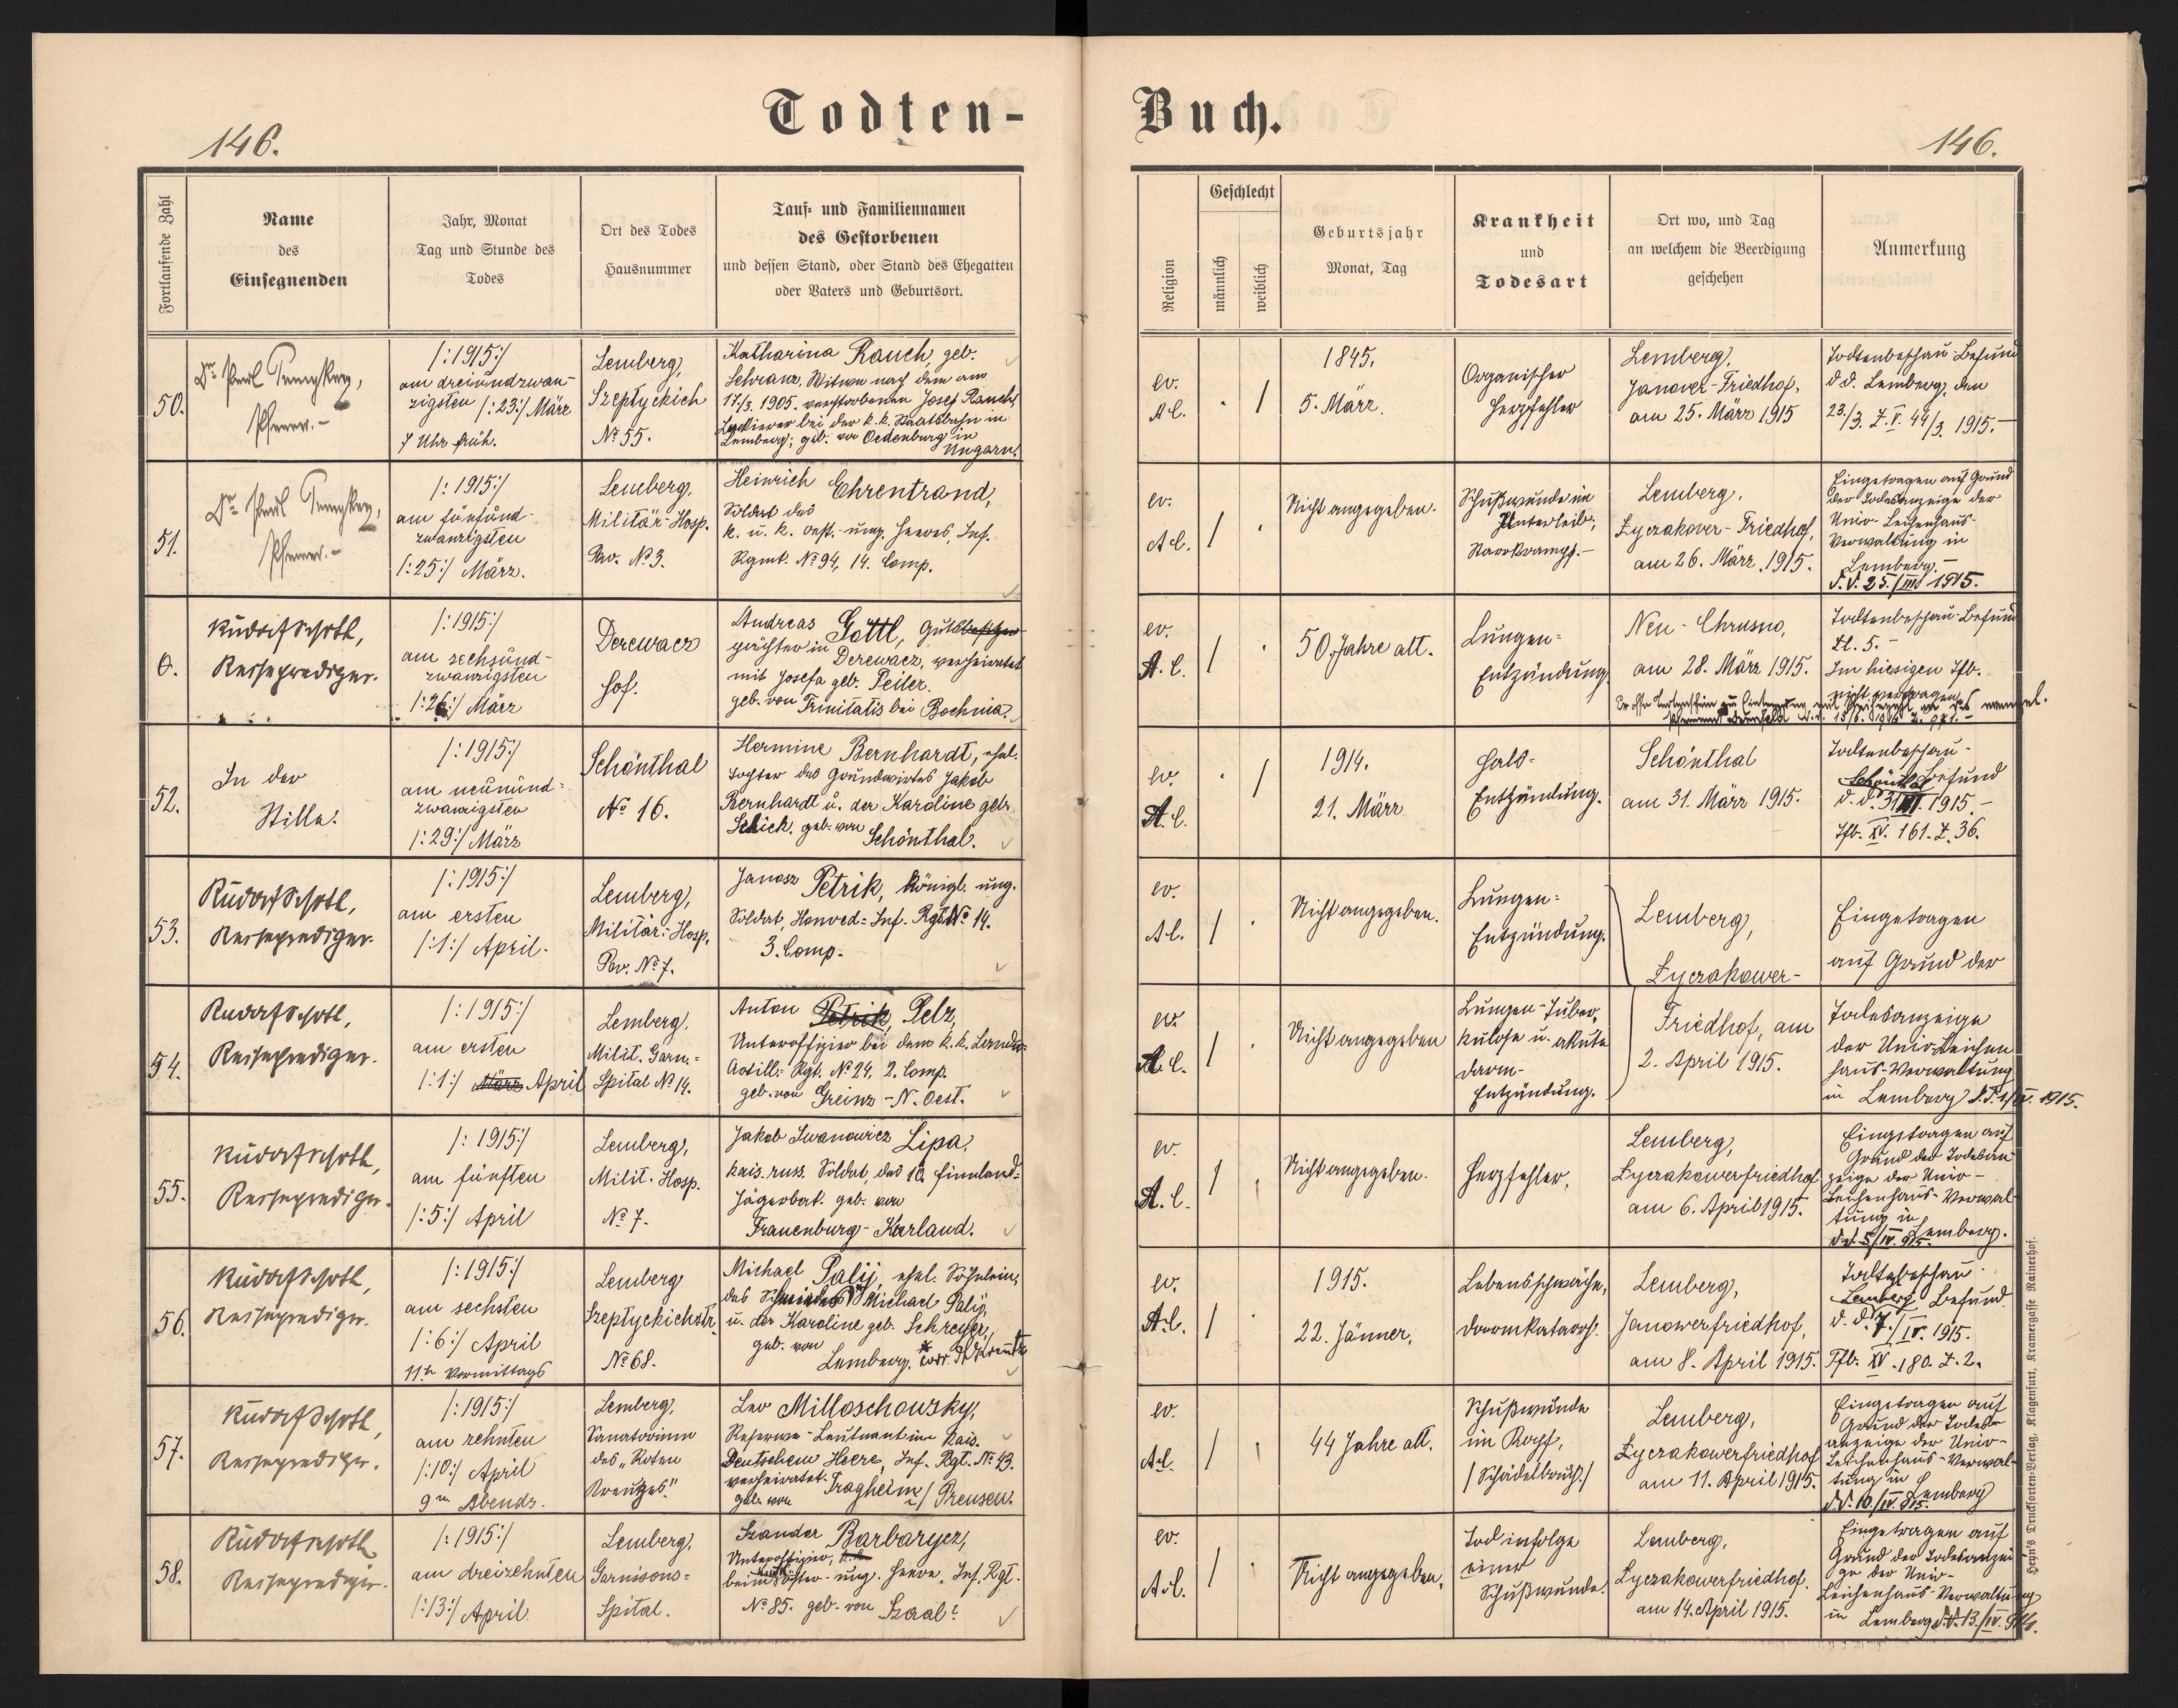 Todten-
Buch.
146.
146.
Fortlaufende Zahl
Name
des
Einsegnenden
Jahr, Monat
Tag und Stunde des
Todes
Ort des Todes
Hausnummer
Tauf- und Familiennamen
des Gestorbenen
und dessen Stand, oder Stand des Ehegatten
oder Vaters und Geburtsort.
Religion
Geschlecht
männlich
weiblich
Geburtsjahr
Monat, Tag
Krankheit
und
Todesart
Ort wo, und Tag
an welchem die Beerdigung
geschehen
Anmerkung
50.
Pfarrer.-
/:1915:/
am dreiundzwan-
zigsten /:23:/ März
7 Uhr früh.
Lemberg,
Szeptyckich
No 55.
Katharina Rauch, geb.
Schranz, Witwe nach dem am
17./3. 1905. verstorbenen Josef Rauch,
Lackierer bei der k.k. Staatsbahn in
Lemberg; geb. von Oedenburg in
Ungarn.
ev.
A.C.
1845.
5. März.
Organischer
Herzfehler
Lemberg,
Janover-Friedhof,
am 25. März 1915
Todtenbeschau-Befund
d.d. Lemberg, den
23./3. Z.V. 44/3. 1915.-
51.
Pfarrer.-
/:1915:/
am fünfund-
zwanzigsten
/:25:/ März.
Lemberg,
Militär-Hosp.
Pav. No 3.
Heinrich Ehrentrand,
Soldat des
k. u. k. oest.-ung. Heeres, Inf.
Rgmt. No 94, 14. Comp.
ev.
A.C.
Nicht angegeben.
Schußwunde im
Unterleib;
Starrkrampf.-
Lemberg,
Lyczakover-Friedhof,
am 26. März 1915.
Eingetragen auf Grund
der Todesanzeige der
Univ-Leichenhaus-
Verwaltung in
Lemberg.-
d.d. 25./III 1915.
6.
Rudolf Scholl,
Reiseprediger.
/:1915:/
am sechsund-
zwanzigsten
/:26:/ März
Derewacz
Hof.
Andreas Göttl, Gutsbesitzer
pächter in Derewacz, verheiratet
mit Josefa geb. Peiler.
geb. von Trinitatis bei Bochnia.
ev.
A.C.
50 Jahre alt.
Lungen-
Entzündung
Neu-Chrusno,
am 28. März 1915.
Todtenbeschau-Befund
Zl. 5.-
Im hiesigen Tfb.
52.
In der
Stille.
/:1915:/
am neunund-
zwanzigsten
/:29:/ März
Schönthal
No 16.
Hermine Bernhardt, ehel.
Tochter des Grundwirtes Jakob
Bernhardt u. der Karoline geb.
Schick, geb. von Schönthal.
ev.
A.C.
1914.
21. März
Hals-
Entzündung.
Schönthal
am 31. März 1915.
Todtenbeschau-
Schönthal Befund
d.d. 31/III. 1915.-
Tfb. XV. 161. Z. 36.
53.
Rudolf Scholl,
Reiseprediger.
/:1915:/
am ersten
/:1:/ April.
Lemberg,
Militär-Hosp.
Pav. No 7.
Janosz Petrik, königl. ung.
Soldat, Honved-Inf. Rgt. No 14.
3. Comp.
ev.
A.C.
Nicht angegeben.
Lungen-
Entzündung.
Lemberg,
Lyczakower-
Eingetragen
auf Grund der
54.
Rudolf Scholl,
Reiseprediger.
/:1915:/
am ersten
/:1:/ März April
Lemberg,
Milit. Garn.-
Spital No 14.
Anton Petrik, Pelz,
Unteroffizier bei dem k.k. Landw.
Artill.-Rgt. No 24, 2. Comp.
geb. von Greinz-N. Oest.
ev.
A.C.
Nicht angegeben
Lungen-Tuber-
kulose u. akute
Darm-
Entzündung.
Friedhof, am
2. April 1915.
Todesanzeige
der Univ-Leichen
haus-Verwaltung
in Lemberg d.d. 1/IV. 1915.
55.
Rudolf Scholl,
Reiseprediger.
/:1915:/
am fünften
/:5:/ April
Lemberg,
Milit. Hosp.
No 7.
Jakob Iwanowicz Lipa,
kais. russ. Soldat, des 10. finnland-
Jägerbat. geb. von
Frauenburg-Kurland.
ev.
A.C.
Nicht angegeben.
Herzfehler.
Lemberg,
Lyczakowerfriedhof
am 6. April 1915.
Eingetragen auf
Grund der Todesan
zeige der Univ-
Leichenhaus-Verwal-
tung in Lemberg.
d.d. 5/IV. 915.
56.
Rudolf Scholl,
Reiseprediger.
/:1915:/
am sechsten
/:6:/ April
11 h Vormittags
Lemberg
Szeptyckichstr.
No 68.
Michael Palij, ehel. Söhnlein,
des Schneiders Michael Palij,
u. der Karoline geb. Schreyer,
geb. von
Lemberg.
ev.
A.C.
1915.
22. Jänner.
Lebensschwäche,
Darmkatarrh.
Lemberg,
Janowerfriedhof,
am 8. April 1915.
Todtenbeschau-
Lemberg Befund
d.d. 7./IV. 1915.
Tfb. XV. 180. Z. 2.
57.
Rudolf Scholl,
Reiseprediger.
/:1915:/
am zehnten
/:10:/ April
9 h Abends.
Lemberg,
Sanatorium
des "Roten
Kreuzes".
Leo Milloschowsky,
Reserve-Leutnant im kais.
Deutschem Heere, Inf. Rgt. No 43.
verheiratet.
geb. von Tragheim / Preusen.
ev.
A.C.
44 Jahre alt.
Schußwunde
im Kopf,
/Schädelbruch/
Lemberg,
Lyczakowerfriedhof
am 11. April 1915.
Eingetragen auf
Grund der Todes-
anzeige der Univ-
Leichenhaus-Verwal-
tung in Lemberg
d.d. 10./IV. 915.
58.
Rudolf Scholl
Reiseprediger.
/:1915:/
am dreizehnten
/:13:/ April.
Lemberg,
Garnisons-
Spital.
Szandor Barbarycz,
Unteroffizier,
beim öster-ung. Heere, Inf. Rgt.
No 85. geb. von Szaal?
ev.
A.C.
Nicht angegeben.
Tod infolge
einer
Schußwunde.
Lemberg,
Lyczakowerfriedhof.
am 14. April 1915.
Eingetragen auf
Grund der Todesanzei-
ge der Univ-
Leichenhaus-Verwaltung
in Lemberg d.d. 13./IV.
Heyn's Drucksorten-Verlag, Klagenfurt, Kramergasse Rainerhof.